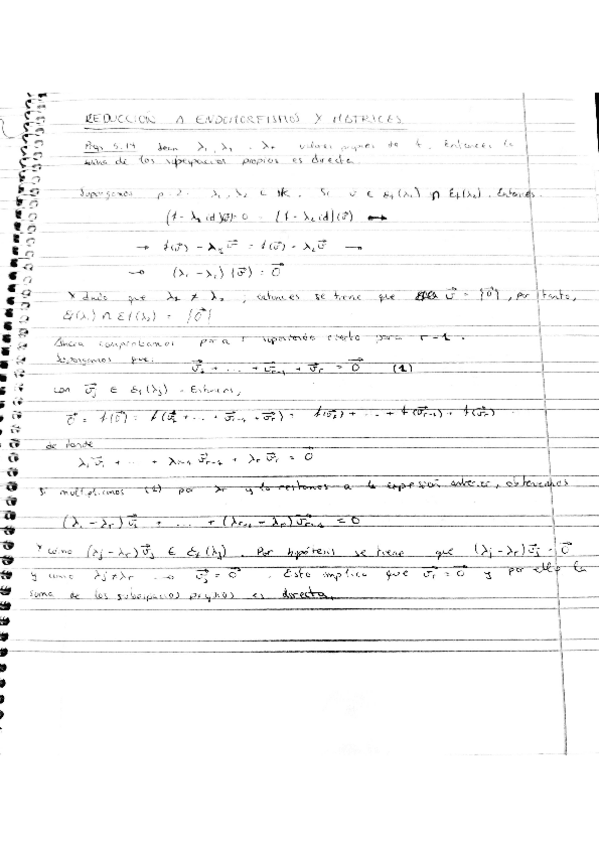 REDUCCIÓN A ENDOMORFISMOS Y MATRICES
Prop 5.14 Sean λ₁, λ₂ . λᵣ valores propios de f. Entonces la
suma de los subespacios propios es directa.
Supongamos λ₁, λ₂ ∈ K. Si v ∈ E_f(λ₁) ∩ E_f(λ₂). Entonces
= (f - λ₂ id)(v⃗)
→ f(v⃗) - λ₂v⃗ = f(v⃗) - λ₁v⃗ →
→ (λ₁ - λ₂)(v⃗) = 0⃗
Y dado que λ₂ ≠ λ₁ ; entonces se tiene que v⃗ = {0⃗}, por tanto,
E_f(λ₁) ∩ E_f(λ₂) = {0⃗}
Ahora comprobamos para r suponiendo cierto para r-1.
Supongamos que:
v⃗₁ + ... + v⃗ᵣ₋₁ + v⃗ᵣ = 0⃗ (1)
con v⃗ⱼ ∈ E_f(λⱼ). Entonces,
0⃗ = f(0⃗) = f(v⃗₁ + ... + v⃗ᵣ₋₁ + v⃗ᵣ) = f(v⃗₁) + ... + f(v⃗ᵣ₋₁) + f(v⃗ᵣ)
de donde
λ₁v⃗₁ + ... + λᵣ₋₁v⃗ᵣ₋₁ + λᵣv⃗ᵣ = 0⃗
Si multiplicamos (1) por λᵣ y lo restamos a la expresión anterior, obtenemos
(λ₁ - λᵣ)v⃗₁ + ... + (λᵣ₋₁ - λᵣ)v⃗ᵣ₋₁ = 0
Y como (λⱼ - λᵣ)v⃗ⱼ ∈ E_f(λⱼ). Por hipótesis se tiene que (λⱼ - λᵣ)v⃗ⱼ = 0⃗
y como λⱼ ≠ λᵣ → v⃗ⱼ = 0⃗. Esto implica que v⃗ᵣ = 0⃗ y por ello la
suma de los subespacios propios es directa.